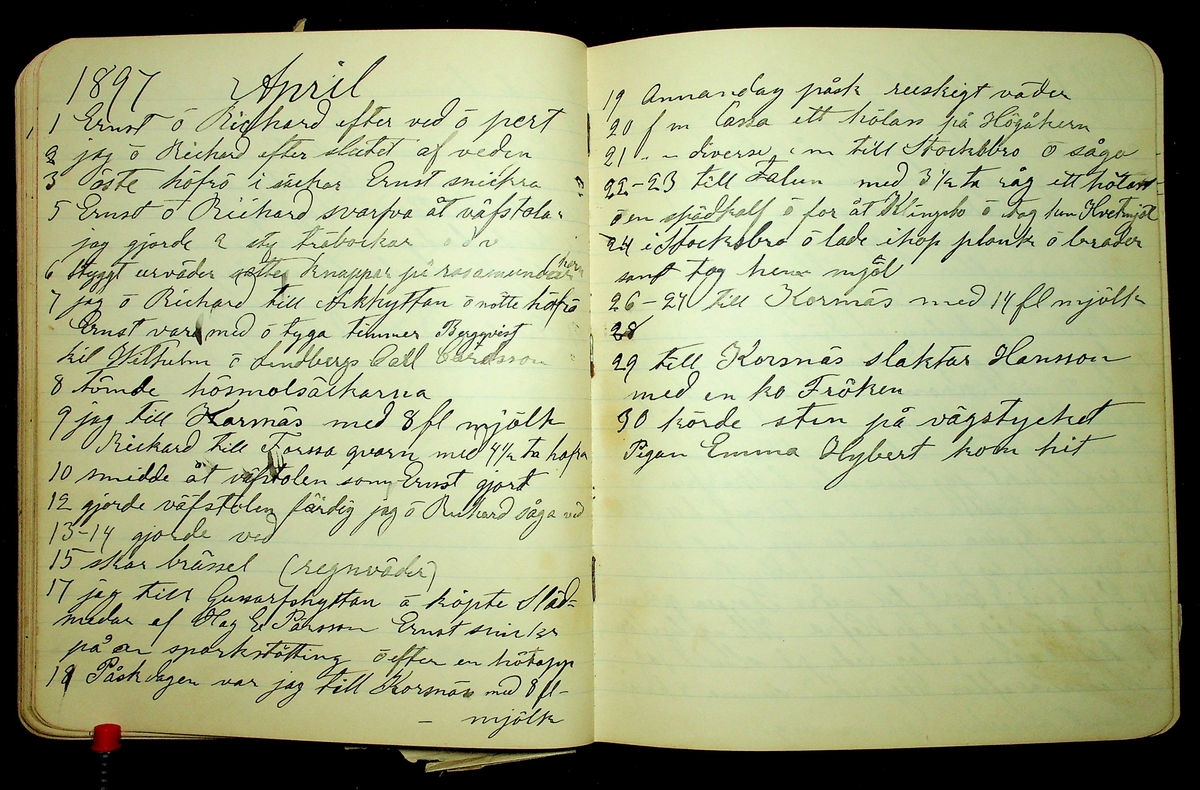 1897 April
1 Ernst ö Richard efter ved ö pert
2 jag ö Rickard efter slutet af veden
3 öste höfrö i säckar Ernst snickra
5 Ernst ö Rickard svarfva åt väfstolar
jag gjorde 2 sty träbockar
6 styggt urväder Knappar på
7 jag ö Rickard till Arkhyttan ö höfrö
Ernst vara med ö tyga timmer Bergqvist
kil Wilhelm ö Lindbergs Call Carlsson
8 tömde hösmolsäckarna
9 jag till Kormäs med 8 fl mjölk
Rickard till Forssa qvarn med 4 1/2 ta hafra
10 smidde åt väfstolen som Ernst gjort
12 gjorde väfstolen färdig jag ö Rickard såga ved
13-14 gjorde ved
15 skar brässel (regnväder)
17 jag till Gussarfshyttan ö köpte Släd-
medar af Olag E Pärsson Ernst snickr
på en sparkstötting ö efter en hötapp
18 Påskdagen var jag till Korsnäs med 8 fl-
- mjölk
19 Annandag påsk ruskigt väder
20 f m Cassa ett hölass på Högåkern
21 - - diverse e m till Stocksbro ö såga
22-23 till Falun med 3 1/2 ta råg ett hölass
ö en spädkalf ö for åt Klingsbo ö tog hem Hvetmjöl
24 i Stocksbro ö lade ihop plank ö bräder
samt tog hem mjöl
26-27 till Korsnäs med 14 fl mjölk
28
29 till Korsnäs slaktar Hansson
med en ko Fröken
30 körde sten på vägstycket
Pigan Emma Hybert kom hit